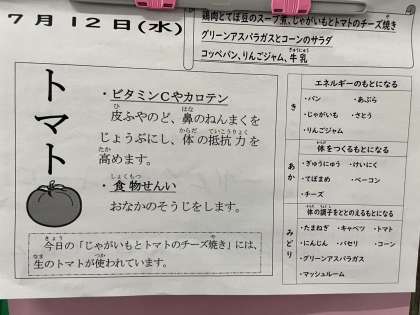 7月12日(水)
鶏肉とてぼ豆のスープ煮、じゃがいもとトマトのチーズ焼き
グリーンアスパラガスとコーンのサラダ
コッペパン、りんごジャム、牛乳
トマト
・ビタミンCやカロテン
皮ふやのど、鼻のねんまくを
じょうぶにし、体の抵抗力を
高めます。
・食物せんい
おなかのそうじをします。
今日の「じゃがいもとトマトのチーズ焼き」には、
生のトマトが使われています。
エネルギーのもとになる
き
・パン ・あぶら
・じゃがいも ・さとう
・りんごジャム
体をつくるもとになる
あか
・ぎゅうにゅう ・けいにく
・てぼまめ ・ベーコン
・チーズ
体の調子をととのえるもとになる
みどり
・たまねぎ ・キャベツ ・トマト
・にんじん ・パセリ ・コーン
・グリーンアスパラガス
・マッシュルーム